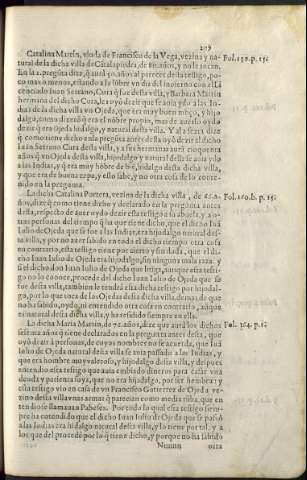 209
Catalina Martin, viuda de Francisco de la Vega, vezina y na- Fol. 150. p. 15.
tural de la dicha villa de Casalapiedra, de 80. años, y no le tocan.
En la 2. pregūta dize, q̄ aurà 50. años al parecer desta testigo, po-
co mas o menos, estando a la lūbre vn dia del inuierno con el Li
cenciado Iuan Serrano, Cura q̄ fue desta villa, y Barbara Martin
hermana del dicho Cura, les oyò dezir que se auia ydo a las In-
dias de la dicha villa Ojeda, que era muy buen moço, y hijo
dalgo, como dirā q̄ era el nōbre propio, mas de auerles oydo
dezir q̄ era Ojeda hidalgo, y natural desta villa. Y a la
q̄ como tiene dicho en la pregūta antes desta oyò dezir al dicho
Iuā Serrano Cura desta villa, y a sus hermanas aurà cincuenta
años q̄ vn Ojeda desta villa, hijodalgo y natural della se auia ydo
a las Indias, q̄ era muy hōbre de biē, hijodalgo de esta dicha villa,
y que era de buena rapa, y esto sabe, y no otra cosa de lo conte-
nido en la pregunta.
La dicha Catalina Portera, vezina de la dicha villa, de 65. a- Fol. 160. b. p. 15.
ños, dize q̄ como tiene dicho y declarado en la pregunta antes
desta, respecto de auer oydo dezir esta testigo a su abuela, y a o-
tras personas del tiempo q̄ ha que tiene dicho, que el dicho Iuā
Iulio de Ojeda que se fue a las Indias, era hijodalgo natural des-
ta villa, y por no auer sabido en todo el dicho tiempo otra cosa
en contrario, esta testigo tiene por cierto y sin duda, que el di-
cho Iuan Iulio de Ojeda era hijodalgo, sin ninguna mala raza. y
si el dicho don Iuan Iulio de Ojeda que litiga, aunque esta testi-
go no le conoce, procede del dicho Iuan Iulio de Ojeda que se
fue desta villa, tambien le tendrà esta dicha testigo por hijodal-
go, por lo que toca de los Ojedas desta dicha villa, demas de que
no ha sabido, oydo, ni entendido otra cosa en contrario, aunque
es natural desta dicha villa, y ha residido siempre en ella.
La dicha Maria Martin, de 72. años, dize que aurà los dichos Fol. 304. p. 15.
sesenta años q̄ tiene declarados en la pregunta antes desta, que
oyò dezir à personas, de cuyos nombres no se acuerda, que Iuā
Iulio de Ojeda natural desta villa se auia passado a las Indias, y
que era hombre muy valeroso, y hijodalgo desta villa, y despues
entendiò esta testigo que auia embiado dineros para casar vna
deuda y parienta suya, que no era hijodalgo. por ser hembra y
esta testigo vio en casa de vn Francisco Gutierrez de Ojeda ve-
zino desta villa vnas armas q̄ parecian como media silba, que en
tendiò se llamauan Pabeses. Por todo lo qual esta testigo siem-
pre ha entendido que el dicho Iuan Iulio de Ojeda que se passò
a las Indias era hidalgo natural desta villa, y lo tiene por tal, y a
los que del procedē por lo q̄ tiene dicho, y porque no ha sabido
otra